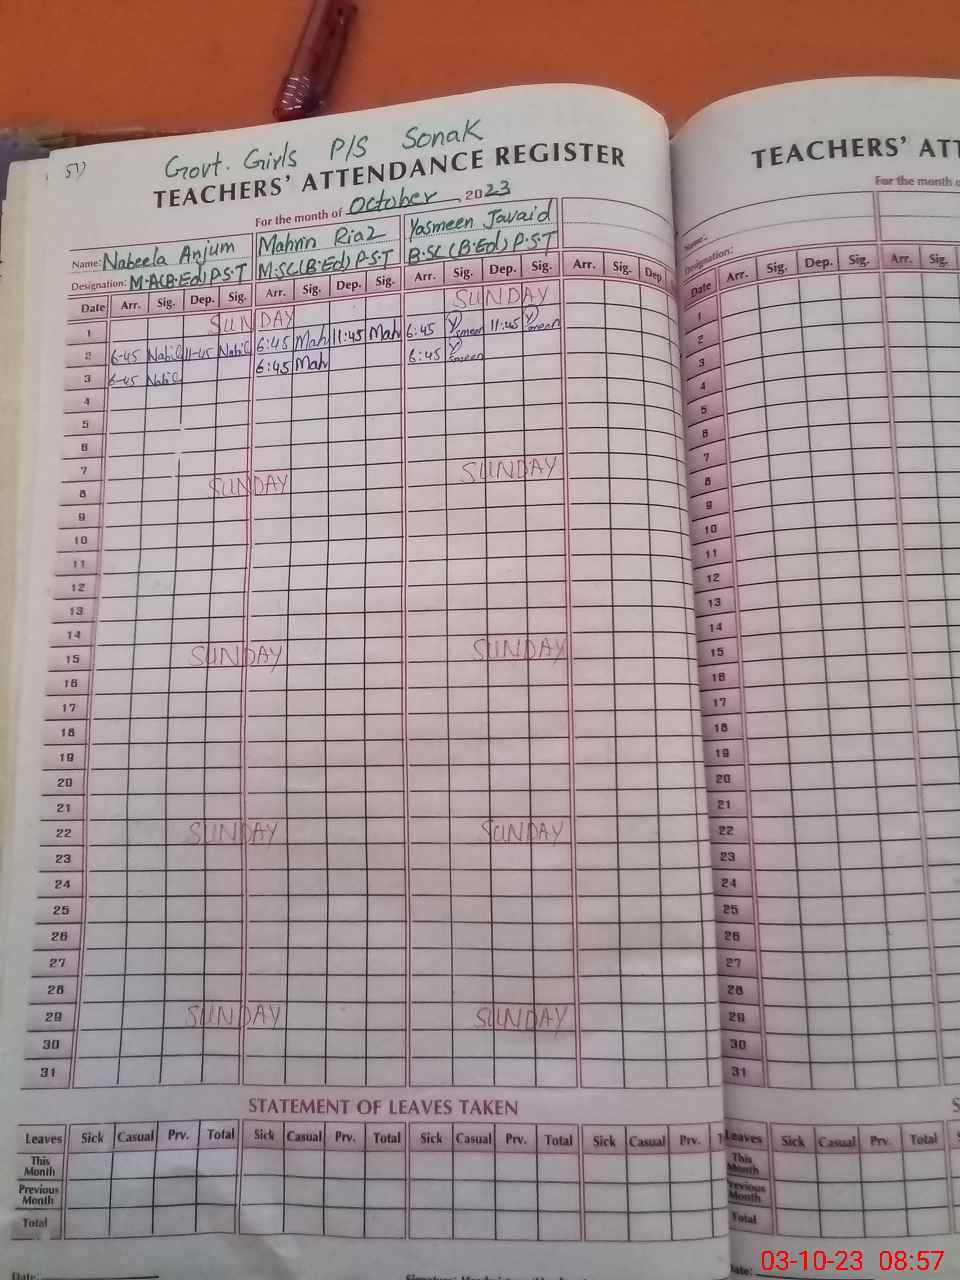 51)
Govt. Girls P/S Sonak
TEACHERS' ATTENDANCE REGISTER
For the month of October 2023
Name: Nabeela Anjum Mahrin Riaz Yasmeen Javaid
Designation: M.A(B.Ed) P.S.T M.SC(B.Ed) P.S.T B.SC(B.Ed) P.S.T
Date Arr. Sig. Dep. Sig. Arr. Sig. Dep. Sig. Arr. Sig. Dep. Sig. Arr. Sig. Dep
1 SUNDAY SUNDAY
2 6-45 Nabil 11-45 Nabil 6:45 Mah 11:45 Mah 6:45 Ysmeen 11:45 Ysmeen
3 6-45 Nabil 6:45 Mah 6:45 Ysmeen
4
5
6
7
8 SUNDAY SUNDAY
9
10
11
12
13
14
15 SUNDAY SUNDAY
16
17
18
19
20
21
22 SUNDAY SUNDAY
23
24
25
26
27
28
29 SUNDAY SUNDAY
30
31
STATEMENT OF LEAVES TAKEN
Leaves Sick Casual Prv. Total Sick Casual Prv. Total Sick Casual Prv. Total Sick Casual Prv. T
This Month
Previous Month
Total
Date:
TEACHERS' ATT
For the month o
Name:
Designation:
Date Arr. Sig. Dep. Sig. Arr. Sig.
1
2
3
4
5
6
7
8
9
10
11
12
13
14
15
16
17
18
19
20
21
22
23
24
25
26
27
28
29
30
31
S
Leaves Sick Casual Prv. Total
This Month
Previous Month
Total
Date:
03-10-23 08:57